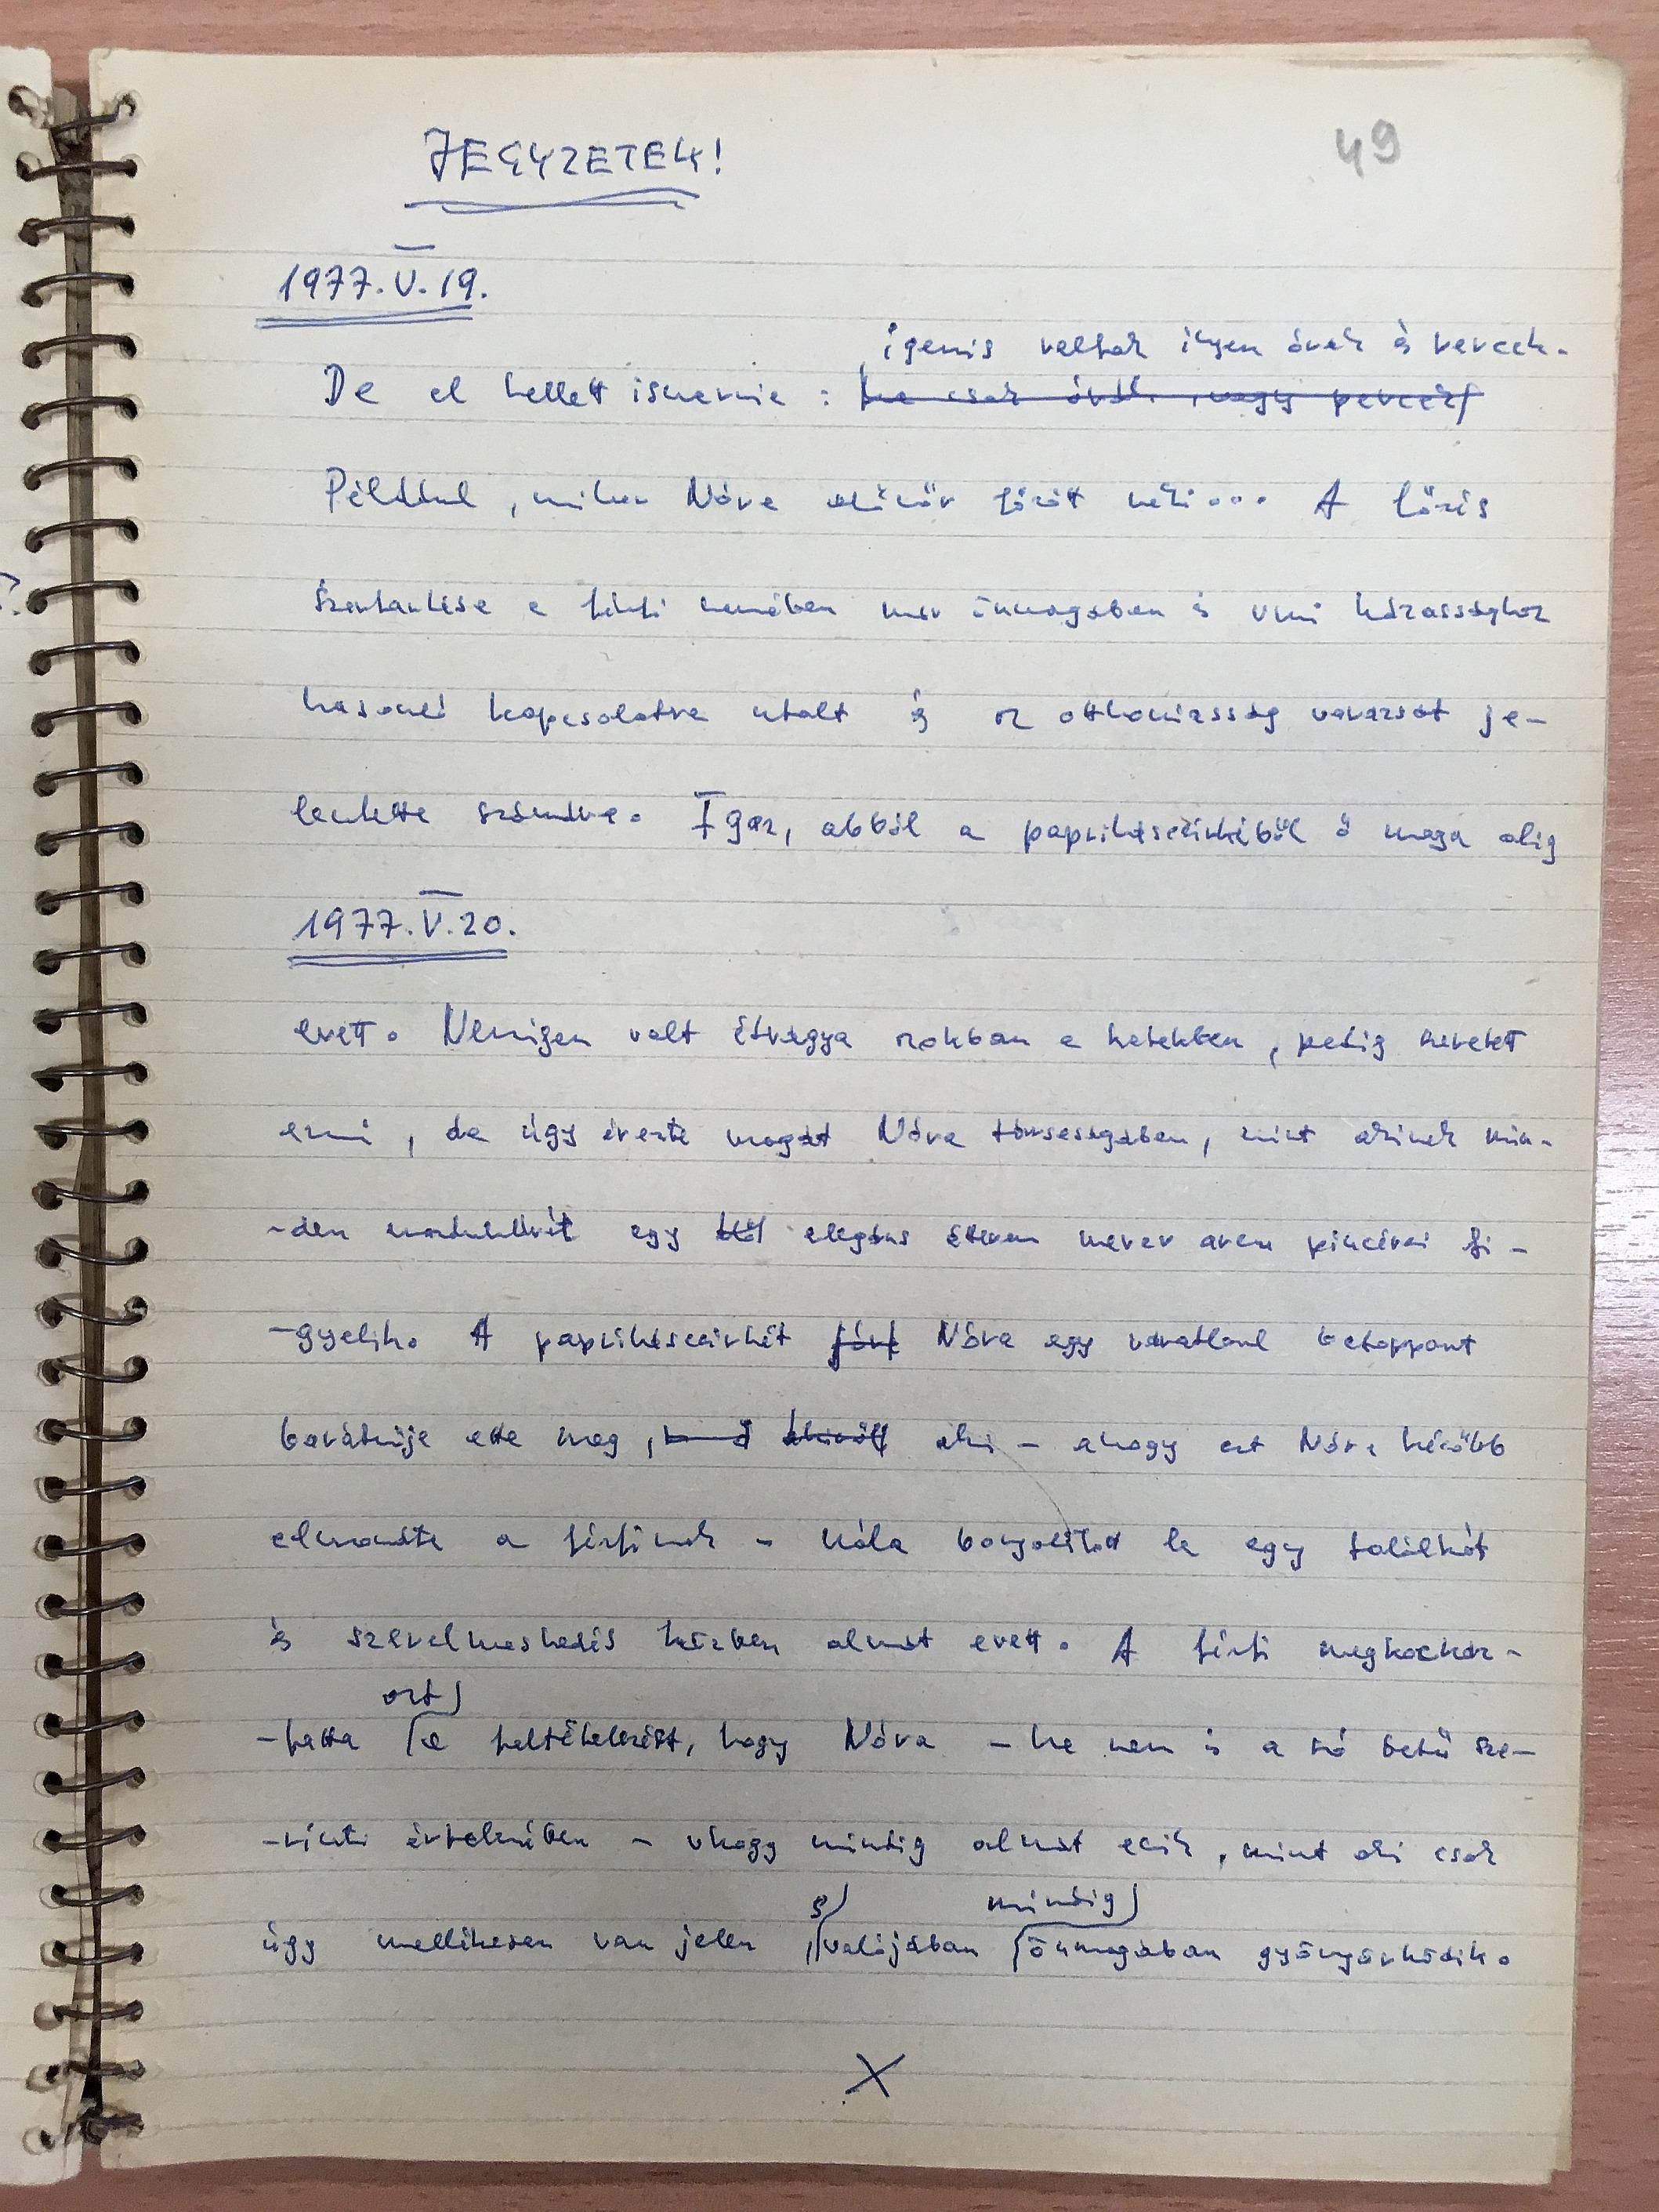 JEGYZETEK!
49
1977.V.19.
igenis voltak ilyen órák és percek.
De el kellett ismernie : ha csak órák vagy percek
Például, mikor Nóra először főzött neki... A főzés
szertartása a férfi szemében már önmagában is vmi házassághoz
hasonló kapcsolatra utalt és az otthoniasság varázsát je-
lentette számára. Igaz, abból a paprikáscsirkéből ő maga alig
1977.V.20.
evett. Nemigen volt étvágya azokban a hetekben, pedig szeretett
enni, de úgy érezte magát Nóra társaságában, mint akinek min-
-den mozdulatát egy elegáns étterem merev arcu pincérei fi-
-gyelik. A paprikáscsirkét főzt Nóra egy váratlanul betoppant
barátnője ette meg, aki - ahogy ezt Nóra később
elmondta a férfinak - nála bonyolított le egy találkát
és szerelmeskedés közben almát evett. A férfi megkockáz-
azt
-tatta a feltételezést, hogy Nóra - ha nem is a szó betű sze-
-rinti értelmében - ahogy mindig almát eszik, mint aki csak
s mindig
úgy mellékesen van jelen, valójában önmagában gyönyörködik.
X